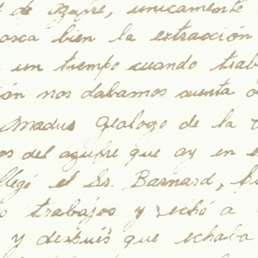 l de azufre, unicamente
osca bien la extracción
un tiempo cuando trab
ión nos dabamos cuenta d
Amadus Geologo de la
os del azufre que ay en e
llegé el Sr. Barnard, h
o trabajos y echó a
y después que echaba